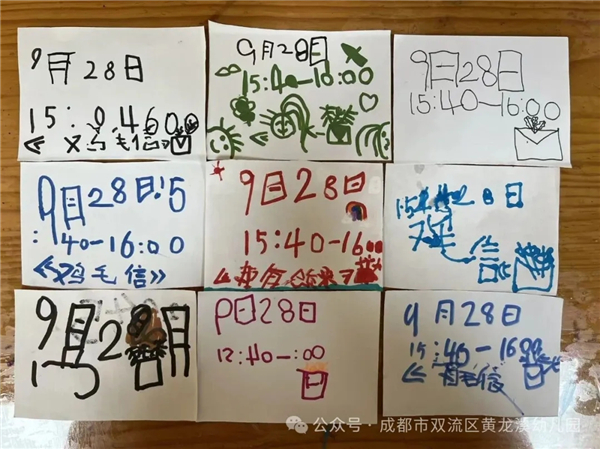 9月28日
15:0460
《鸡毛信》
9月28日
15:40-16:00
9月28日
15:40-16:00
9月28日15
:40-16:00
《鸡毛信》
9月28日
15:40-1600
28日
信
9月28日
P日28日
12:40-:00
9月28日
15:40-1600
《毛信
公众号·成都市双流区黄龙溪幼儿园